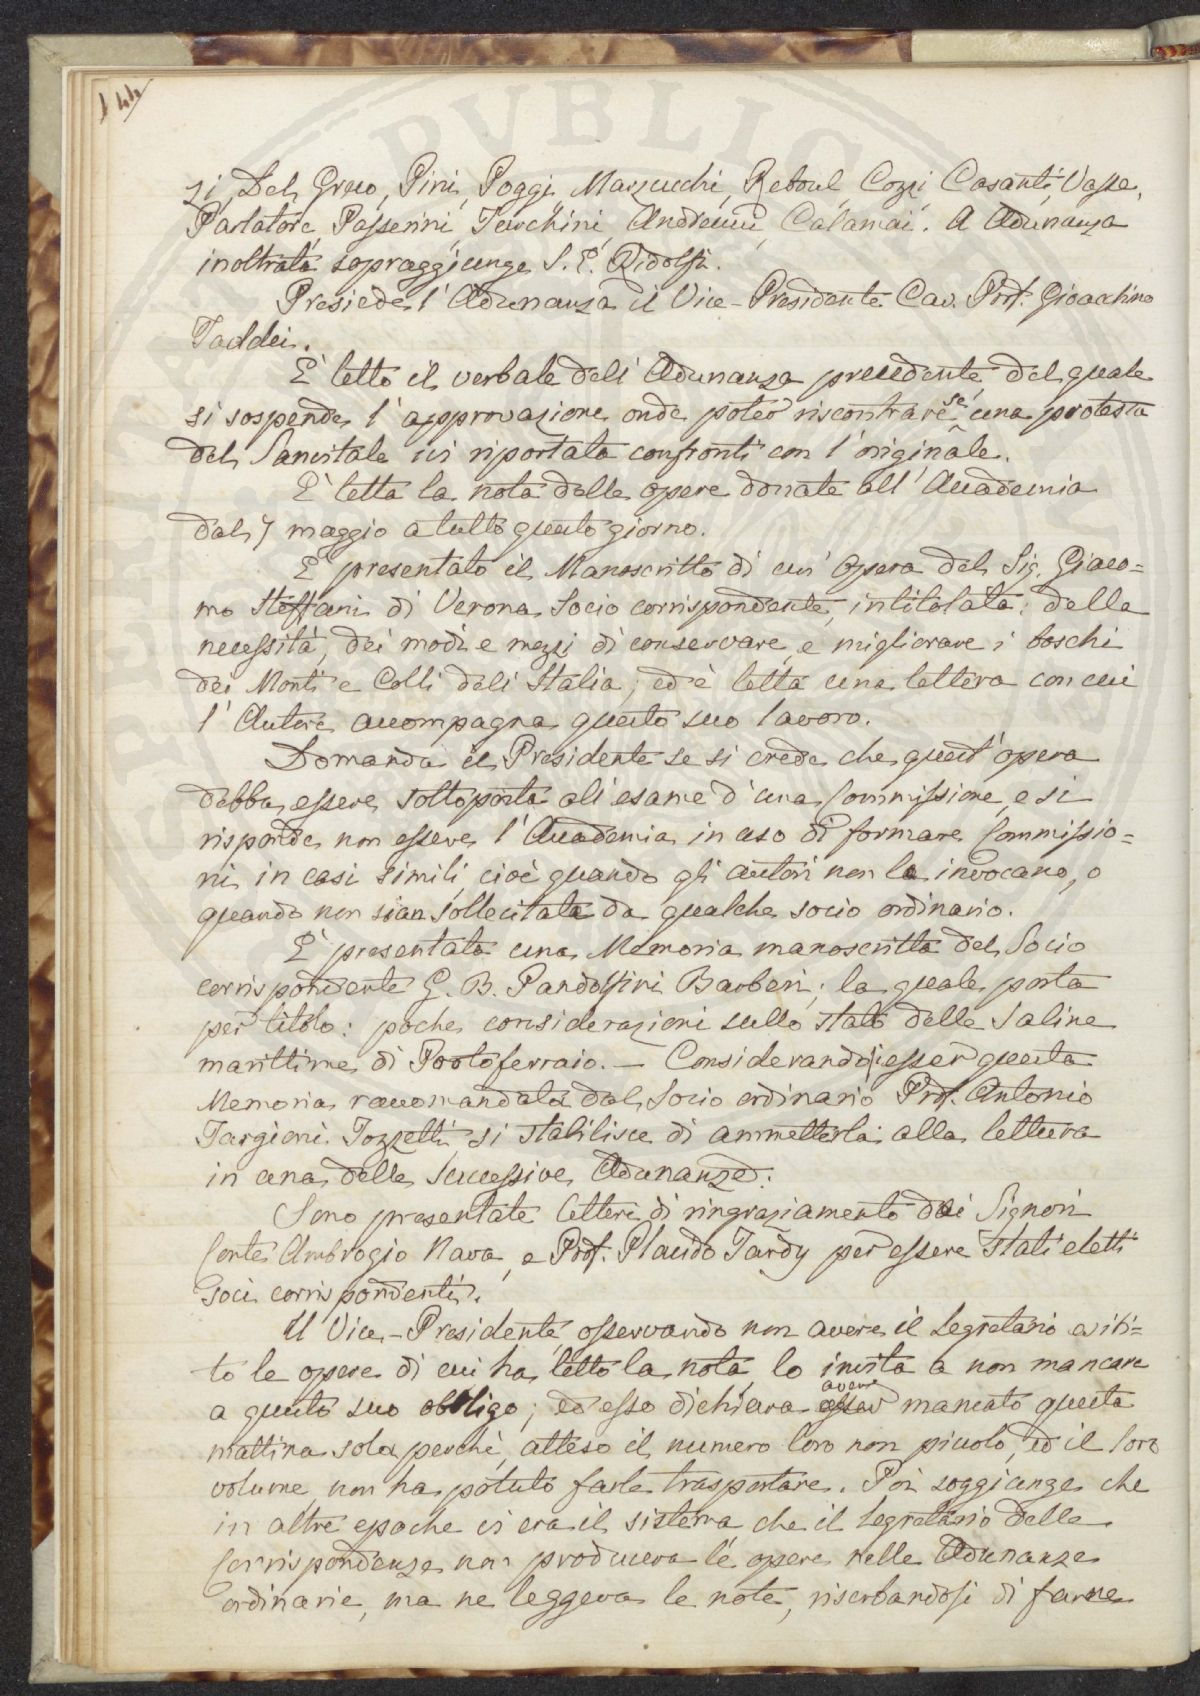 144
zi, Del Greco, Pini, Poggi, Marzucchi, Reboul, Cozzi, Casanti, Vasse,
Parlatore, Passerini, Turchini, Andreucci, Calamai. A Adunanza
inoltrata sopraggiunge S. E. Ridolfi.
Presiede l'Adunanza il Vice-Presidente Cav. Prof. Gioacchino
Taddei.
È letto il verbale dell'Adunanza precedente, del quale
si sospende l'approvazione onde poter riscontrare se una protesta
del Sanvitale ivi riportata confronti con l'originale.
È letta la nota delle opere donate all'Accademia
dal 7 maggio a tutto questo giorno.
È presentato il Manoscritto di un'Opera del Sig. Giaco=
mo Steffani di Verona, Socio corrispondente, intitolata: della
necessità, dei modi e mezzi di conservare, e migliorare i boschi
dei Monti e Colli dell'Italia; ed è letta una lettera con cui
l'Autore accompagna questo suo lavoro.
Domanda il Presidente se si crede che quest'opera
debba essere sottoposta all'esame d'una Commissione, e si
risponde non essere l'Accademia in uso di formare Commissio=
ni in casi simili, cioè quando gli autori non la invocano, o
quando non sian sollecitate da qualche socio ordinario.
È presentata una Memoria manoscritta del Socio
corrispondente G. B. Pandolfini Barberi; la quale porta
per titolo: poche considerazioni sullo stato delle Saline
marittime di Portoferraio. — Considerando esser questa
Memoria raccomandata dal Socio ordinario Prof. Antonio
Targioni Tozzetti, si stabilisce di ammetterla alla lettura
in una delle successive Adunanze.
Sono presentate lettere di ringraziamento dei Signori
Conte Ambrogio Nava, e Prof. Placido Tardy per essere stati eletti
Soci corrispondenti.
Il Vice-Presidente, osservando non avere il Segretario esibi=
to le opere di cui ha letto la nota, lo invita a non mancare
a questo suo obbligo; ed esso dichiara avere mancato questa
mattina solo perchè, atteso il numero loro non piccolo, ed il loro
volume, non ha potuto farle trasportare. Poi soggiunge che
in altre epoche ci era il sistema che il Segretario delle
Corrispondenze non produceva le opere nelle Adunanze
ordinarie, ma ne leggeva le note, riserbandosi di farne